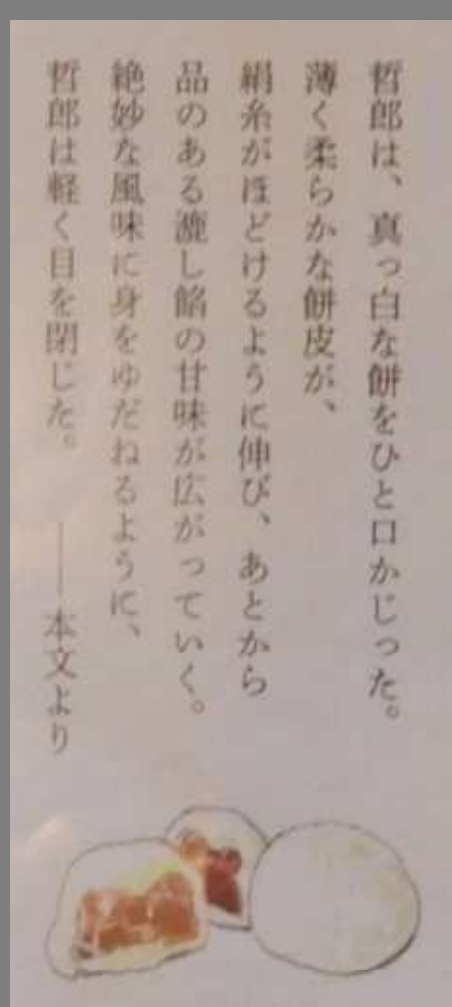 哲郎は、真っ白な餅をひと口かじった。
薄く柔らかな餅皮が、
絹糸がほどけるように伸び、あとから
品のある漉し餡の甘味が広がっていく。
絶妙な風味に身をゆだねるように、
哲郎は軽く目を閉じた。 ――本文より